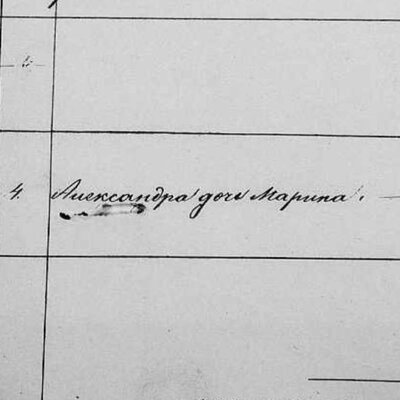 4. Александра дочь Марина.